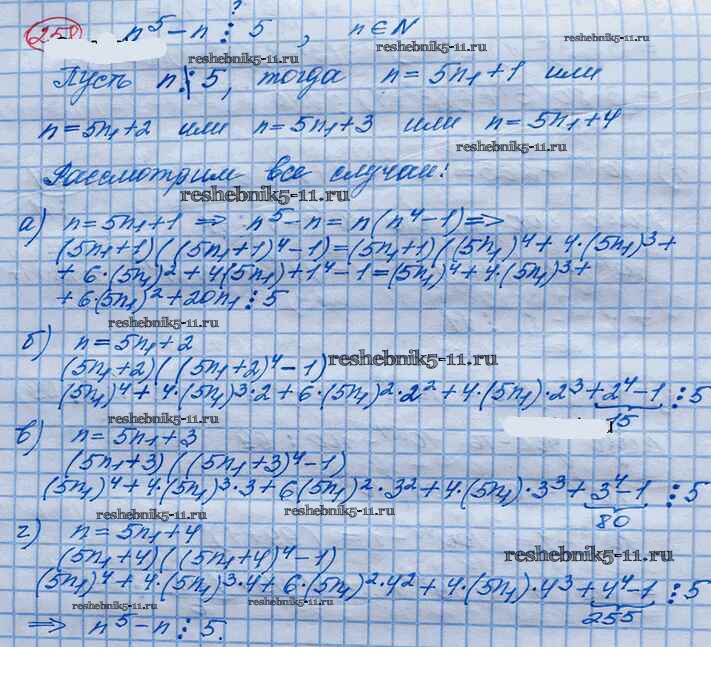 ?
258 n⁵ − n ⋮ 5 , n ∈ N
reshebnik5-11.ru reshebnik5-11.ru
Пусть n ⋮̸ 5, тогда n = 5n₁ + 1 или
reshebnik5-11.ru
n = 5n₁ + 2 или n = 5n₁ + 3 или n = 5n₁ + 4
reshebnik5-11.ru
Рассмотрим все случаи:
reshebnik5-11.ru
а) n = 5n₁ + 1 ⇒ n⁵ − n = n(n⁴ − 1) ⇒
(5n₁ + 1)((5n₁ + 1)⁴ − 1) = (5n₁ + 1)((5n₁)⁴ + 4·(5n₁)³ +
+ 6·(5n₁)² + 4(5n₁) + 1⁴ − 1 = (5n₁)⁴ + 4·(5n₁)³ +
+ 6·(5n₁)² + 20n₁ ⋮ 5
reshebnik5-11.ru
б) n = 5n₁ + 2
(5n₁ + 2)((5n₁ + 2)⁴ − 1)
reshebnik5-11.ru
(5n₁)⁴ + 4·(5n₁)³·2 + 6·(5n₁)²·2² + 4·(5n₁)·2³ + 2⁴ − 1 ⋮ 5
reshebnik5-11.ru 15
в) n = 5n₁ + 3
(5n₁ + 3)((5n₁ + 3)⁴ − 1)
(5n₁)⁴ + 4·(5n₁)³·3 + 6(5n₁)²·3² + 4·(5n₁)·3³ + 3⁴ − 1 ⋮ 5
reshebnik5-11.ru reshebnik5-11.ru 80
г) n = 5n₁ + 4
(5n₁ + 4)((5n₁ + 4)⁴ − 1)
reshebnik5-11.ru
(5n₁)⁴ + 4·(5n₁)³·4 + 6·(5n₁)²·4² + 4·(5n₁)·4³ + 4⁴ − 1 ⋮ 5
reshebnik5-11.ru reshebnik5-11.ru 255
⇒ n⁵ − n ⋮ 5.